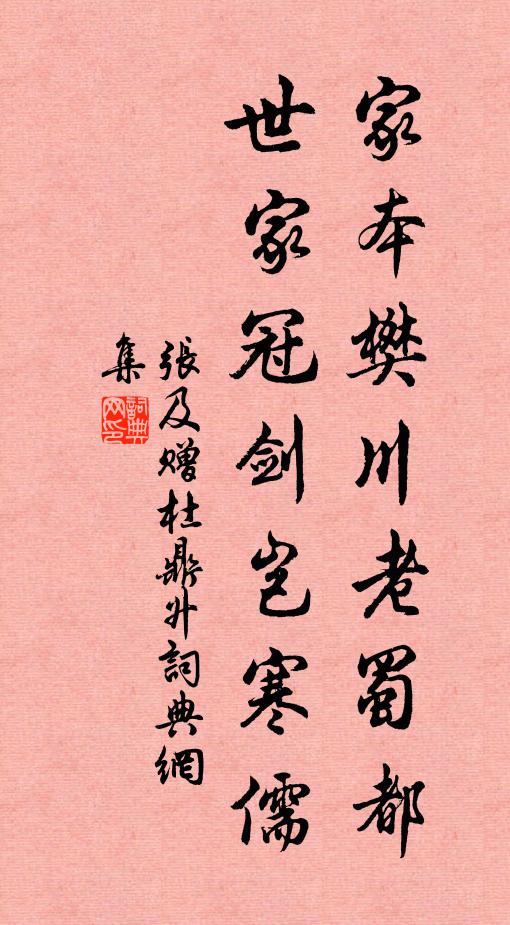 家本樊川老蜀都
世家冠剑岂寒儒
張及赠杜鼎升詞典網
集
詞典
网印